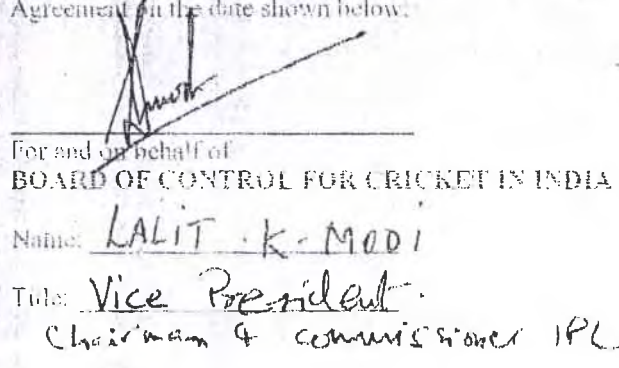 Agreement on the date shown below.
For and on behalf of
BOARD OF CONTROL FOR CRICKET IN INDIA
Name: LALIT . K - MODI
Title: Vice President.
Chairman & commissioner IPL